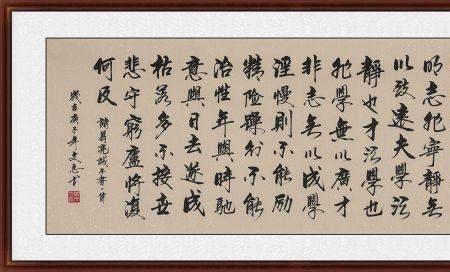 明志非寧靜無
以致遠夫學須
靜也才須學也
非學無以廣才
非志無以成學
淫慢則不能勵
精險躁則不能
治性年與時馳
意與日去遂成
枯落多不接世
悲守窮廬將復
何及
諸葛亮誡子書一首
庚子年